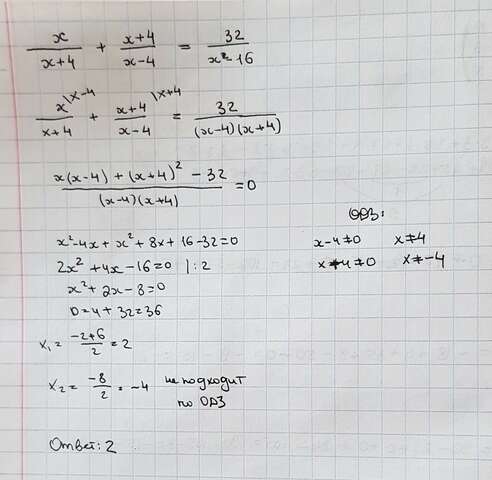 x/(x+4) + (x+4)/(x-4) = 32/(x² 16)
x\x-4/(x+4) + (x+4)\x+4/(x-4) = 32/((x-4)(x+4))
(x(x-4) + (x+4)² - 32)/((x-4)(x+4)) = 0
ОДЗ:
x²-4x+x²+8x+16-32=0
x-4≠0 x≠4
2x²+4x-16=0 |:2
x+4≠0 x≠-4
x²+2x-8=0
D=4+32=36
x₁= (-2+6)/2 = 2
x₂= -8/2 = -4 не подходит
по ОДЗ
Ответ: 2